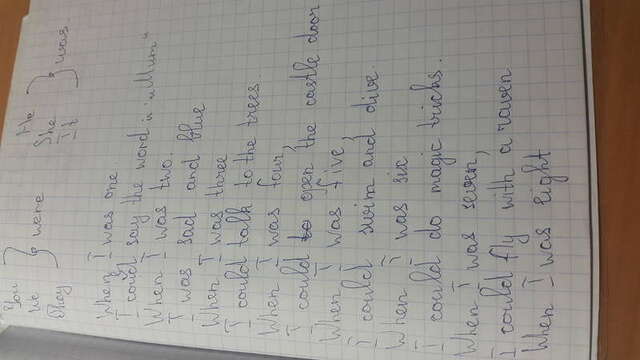 You
We
They
} were
He
She
It
} was
When I was one.
I could say the word "Mum"
When I was two.
I was sad and blue
When I was three
I could talk to the trees.
When I was four,
I could to open the castle door
When I was five,
I could swim and dive.
When I was six
I could do magic tricks.
When I was seven,
I could fly with a raven
When I was eight